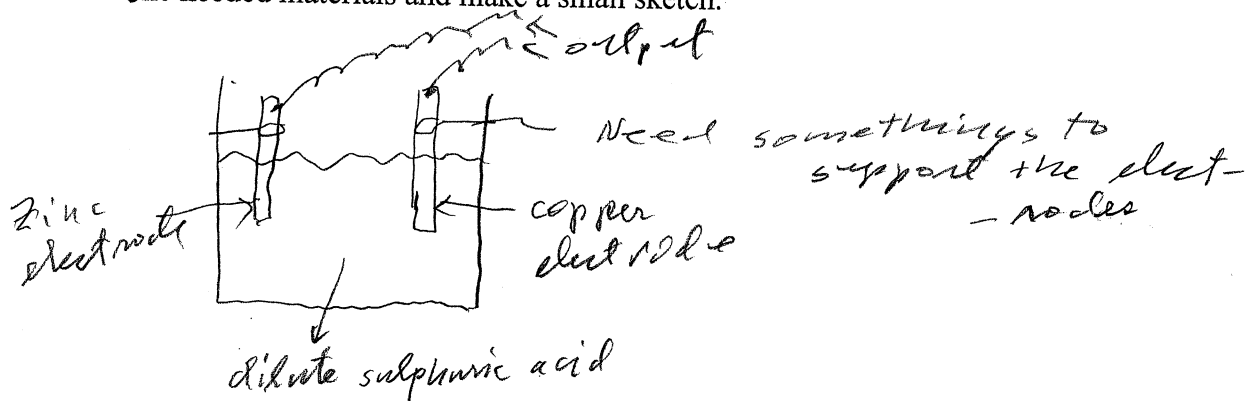 the needed materials and make a small sketch.
output
Need somethings to
support the elect-
-rodes
Zinc
electrode
copper
electrode
dilute sulphuric acid